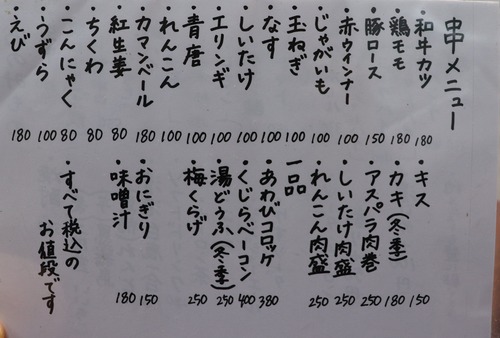 串メニュー
・和牛カツ 180
・鶏モモ 180
・豚ロース 150
・赤ウィンナー 100
・じゃがいも 100
・玉ねぎ 100
・なす 100
・しいたけ 100
・エリンギ 100
・青唐 100
・れんこん 100
・カマンベール 180
・紅生姜 80
・ちくわ 80
・こんにゃく 80
・うずら 100
・えび 180
・キス 150
・カキ(冬季) 180
・アスパラ肉巻 250
・しいたけ肉盛 250
・れんこん肉盛 250
一品
・あわびコロッケ 380
・くじらベーコン 400
・湯どうふ(冬季) 250
・梅くらげ 250
・おにぎり 150
・味噌汁 180
・すべて税込の
お値段です